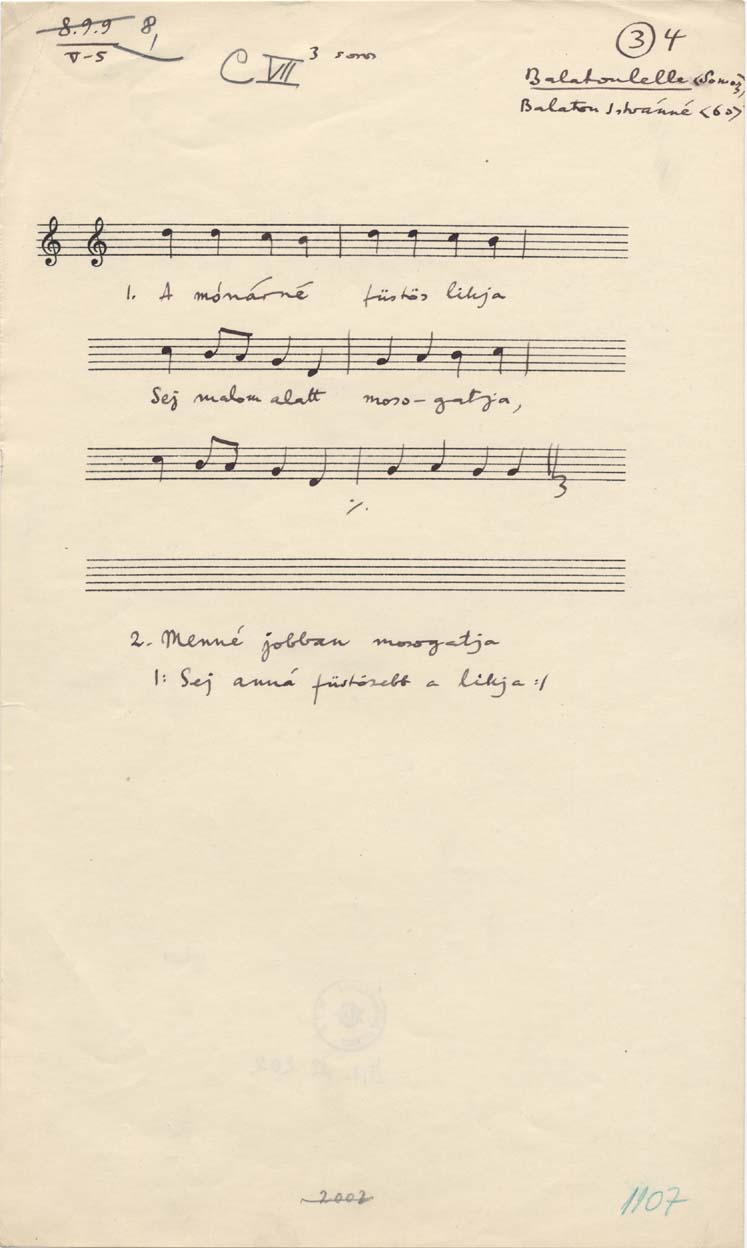 8.9.9 8,
V-5
C VII 3 soros
3 4
Balatonlelle (Somogy)
Balaton Istvánné (60)
1. A mónárné füstös likja
Sej malom alatt moso-gatja,
3
·/·
2. Menné jobban mosogatja
|: Sej anná füstösebb a likja :|
2002
1107